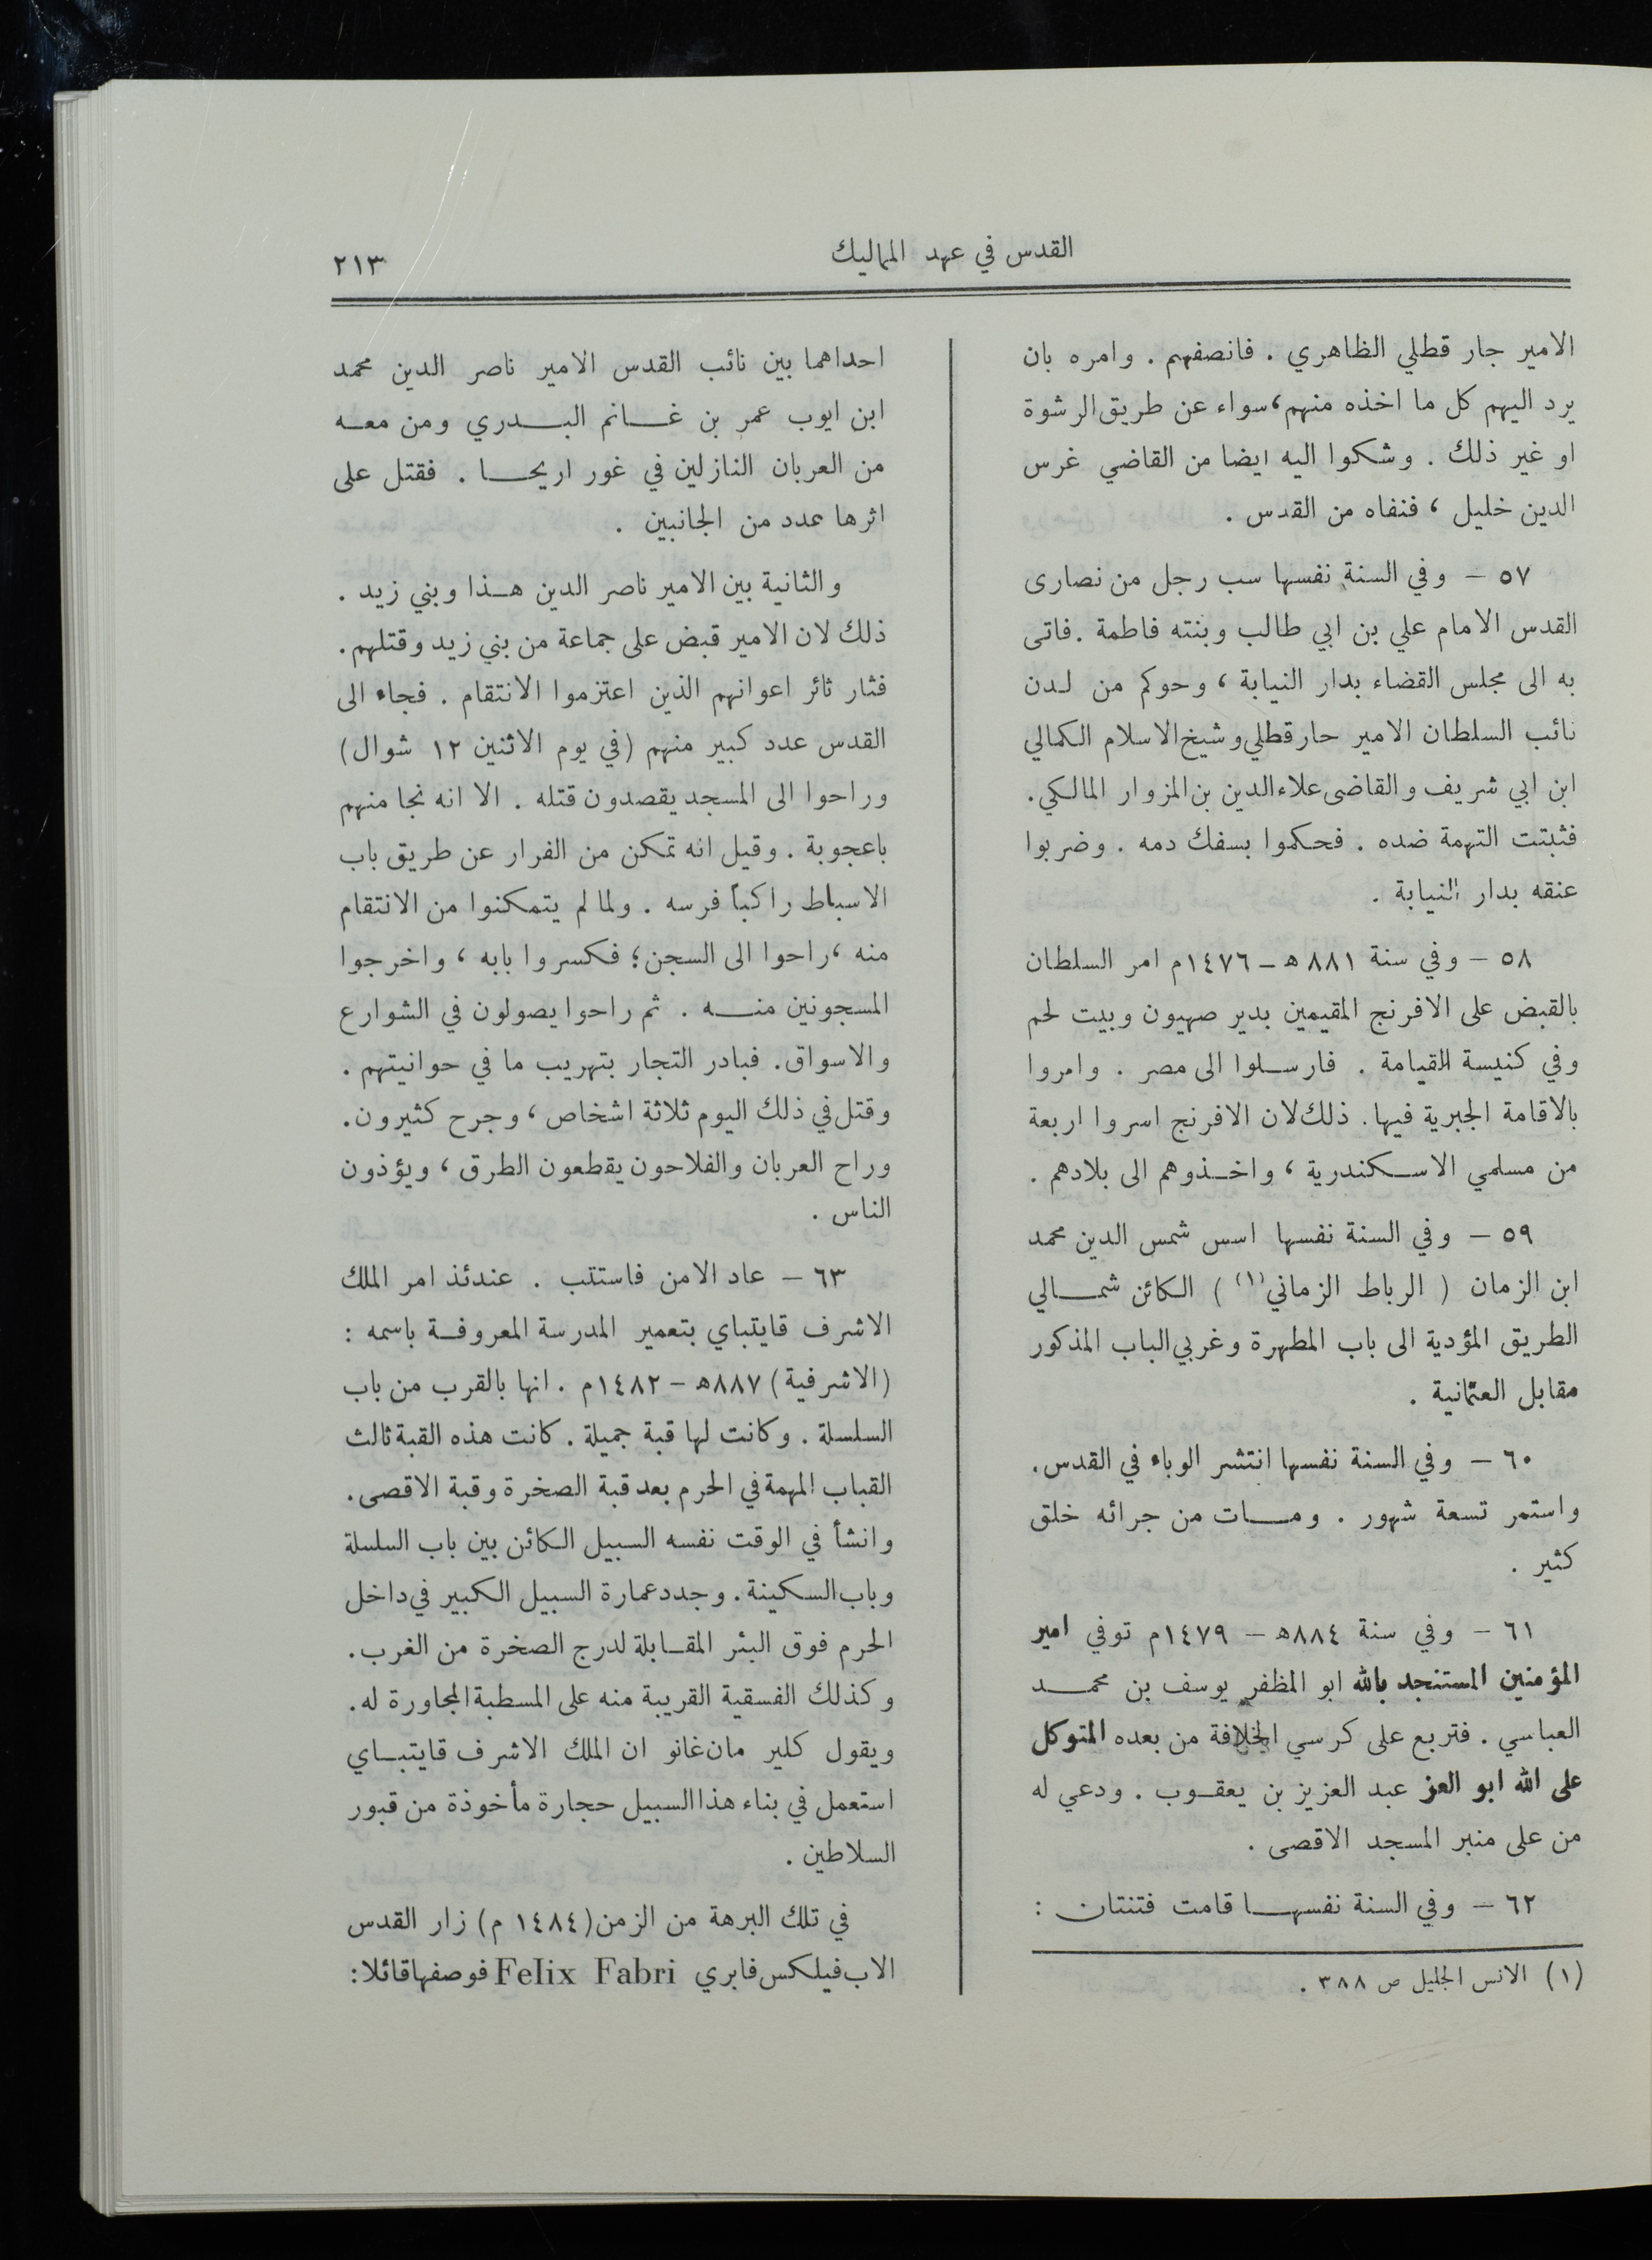 القدس في عهد المماليك
٢١٣
الامير جار قطلي الظاهري . فانصفهم . وامره بان
يرد اليهم كل ما اخذه منهم، سواء عن طريق الرشوة
او غير ذلك . وشكوا اليه ايضا من القاضي غرس
الدين خليل ، فنفاه من القدس .
٥٧ – وفي السنة نفسها سب رجل من نصارى
القدس الامام علي بن ابي طالب وبنته فاطمة . فاتى
به الى مجلس القضاء بدار النيابة ، وحوكم من لدن
نائب السلطان الامير حار قطلي وشيخ الاسلام الكمالي
ابن ابي شريف والقاضى علاء الدين بن المزوار المالكي .
فثبتت التهمة ضده . فحكموا بسفك دمه . وضربوا
عنقه بدار النيابة .
٥٨ – وفي سنة ٨٨١ ه – ١٤٧٦م امر السلطان
بالقبض على الافرنج المقيمين بدير صهيون وبيت لحم
وفي كنيسة القيامة . فارسلوا الى مصر . وامروا
بالاقامة الجبرية فيها . ذلك لان الافرنج اسروا اربعة
من مسلمي الاسكندرية ، واخذوهم الى بلادهم .
٥٩ – وفي السنة نفسها اسس شمس الدين محمد
ابن الزمان ( الرباط الزماني (١) ) الكائن شمالي
الطريق المؤدية الى باب المطهرة وغربي الباب المذكور
مقابل العثمانية .
٦٠ – وفي السنة نفسها انتشر الوباء في القدس .
واستمر تسعة شهور . ومات من جرائه خلق
كثير .
٦١ – وفي سنة ٨٨٤ه – ١٤٧٩م توفي امير
المؤمنين المستنجد بالله ابو المظفر يوسف بن محمد
العباسي . فتربع على كرسي الخلافة من بعده المتوكل
على الله ابو العز عبد العزيز بن يعقوب . ودعي له
من على منبر المسجد الاقصى .
٦٢ – وفي السنة نفسها قامت فتنتان :
(١) الانس الجليل ص ٣٨٨ .
احداهما بين نائب القدس الامير ناصر الدين محمد
ابن ايوب عمر بن غانم البدري ومن معه
من العربان النازلين في غور اريحا . فقتل على
اثرها عدد من الجانبين .
والثانية بين الامير ناصر الدين هذا وبني زيد .
ذلك لان الامير قبض على جماعة من بني زيد وقتلهم .
فثار ثائر اعوانهم الذين اعتزموا الانتقام . فجاء الى
القدس عدد كبير منهم (في يوم الاثنين ١٢ شوال)
وراحوا الى المسجد يقصدون قتله . الا انه نجا منهم
باعجوبة . وقيل انه تمكن من الفرار عن طريق باب
الاسباط راكباً فرسه . ولما لم يتمكنوا من الانتقام
منه ، راحوا الى السجن ؛ فكسروا بابه ، واخرجوا
المسجونين منه . ثم راحوا يصولون في الشوارع
والاسواق . فبادر التجار بتهريب ما في حوانيتهم .
وقتل في ذلك اليوم ثلاثة اشخاص ، وجرح كثيرون .
وراح العربان والفلاحون يقطعون الطرق ، ويؤذون
الناس .
٦٣ – عاد الامن فاستتب . عندئذ امر الملك
الاشرف قايتباي بتعمير المدرسة المعروفة باسمه :
(الاشرفية) ٨٨٧ه – ١٤٨٢م . انها بالقرب من باب
السلسلة . وكانت لها قبة جميلة . كانت هذه القبة ثالث
القباب المهمة في الحرم بعد قبة الصخرة وقبة الاقصى .
وانشأ في الوقت نفسه السبيل الكائن بين باب السلسلة
وباب السكينة . وجدد عمارة السبيل الكبير في داخل
الحرم فوق البئر المقابلة لدرج الصخرة من الغرب .
وكذلك الفسقية القريبة منه على المسطبة المجاورة له .
ويقول كلير مان غانو ان الملك الاشرف قايتباي
استعمل في بناء هذا السبيل حجارة مأخوذة من قبور
السلاطين .
في تلك البرهة من الزمن (١٤٨٤ م) زار القدس
الاب فيلكس فابري Felix Fabri فوصفها قائلا :